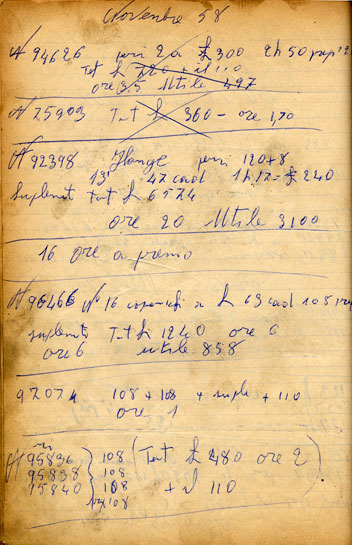 Novembre 58
N 94626 pezzi 2 a £ 300 2h 50
Tot £ 720 + il 110
ore 3,5 Utile 497
N 75903 Tot £ 360 - ore 1,20
N 92398 Flange pezzi 120+8
13' 47 cad 1h17= £ 240
Suplemt Tot £ 6574
ore 20 Utile 3100
16 ore a premio
N 96466 N° 16 coperchi a £ 63 cad 105
suplemto Tot £ 1240 ore 6
ore 6 utile 858
97074 108 + 108 + suple + 110
ore 1
N 95836 } 108 ( Tot £ 480 ore 2 )
95838 108
95840 108 + il 110
108